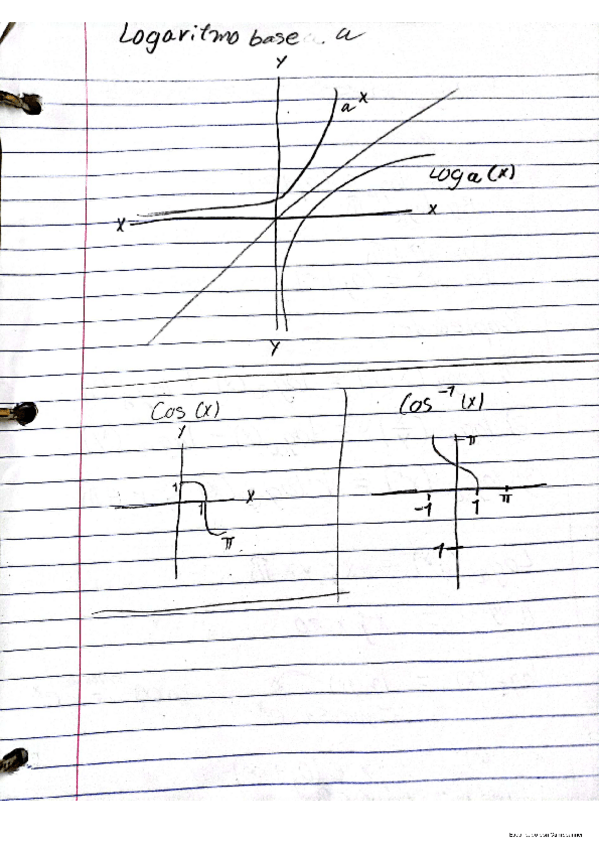 Logaritmo base a
y
a^x
Loga(x)
x
x
y
Cos(x)
y
1
1
x
π
Cos^-1(x)
π
-1
1
π
1